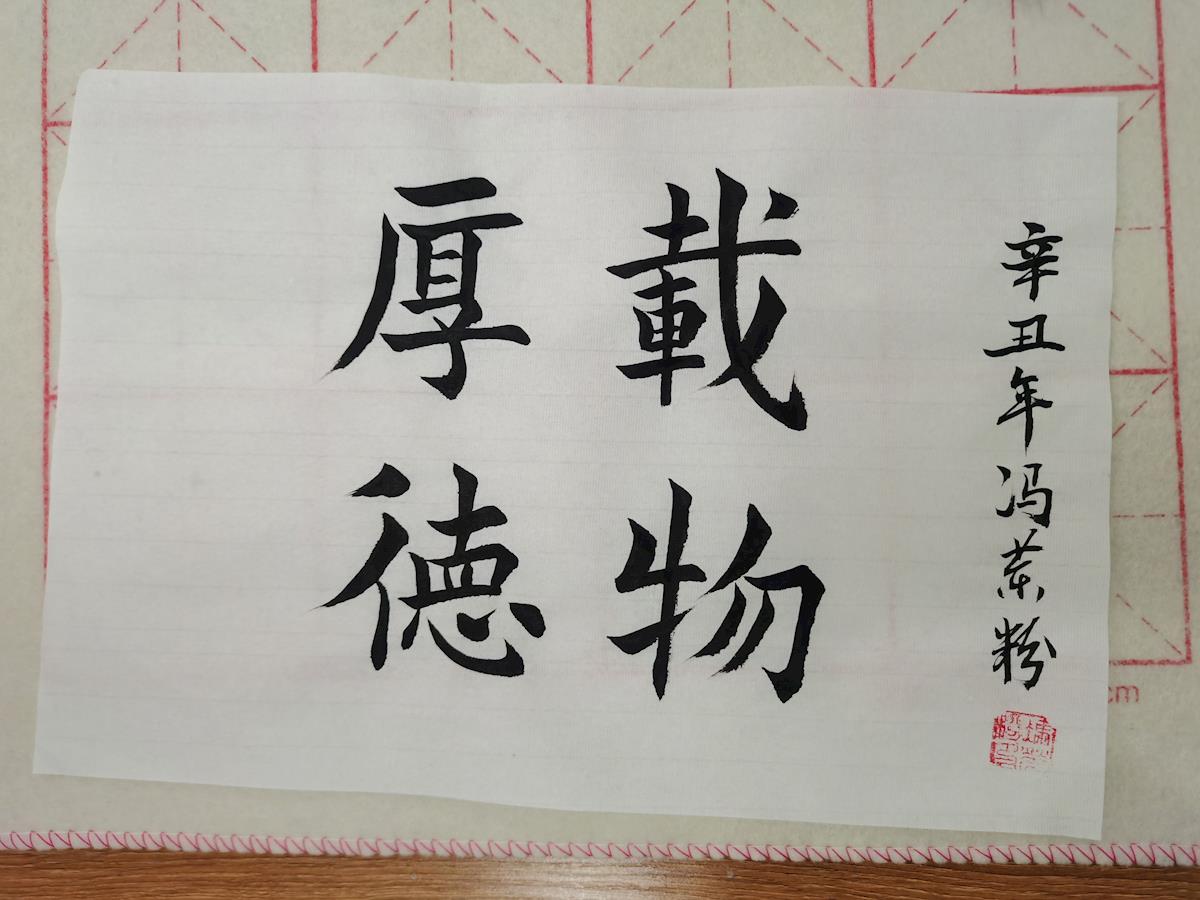 厚徳
載物
辛丑年冯荣粉
cm